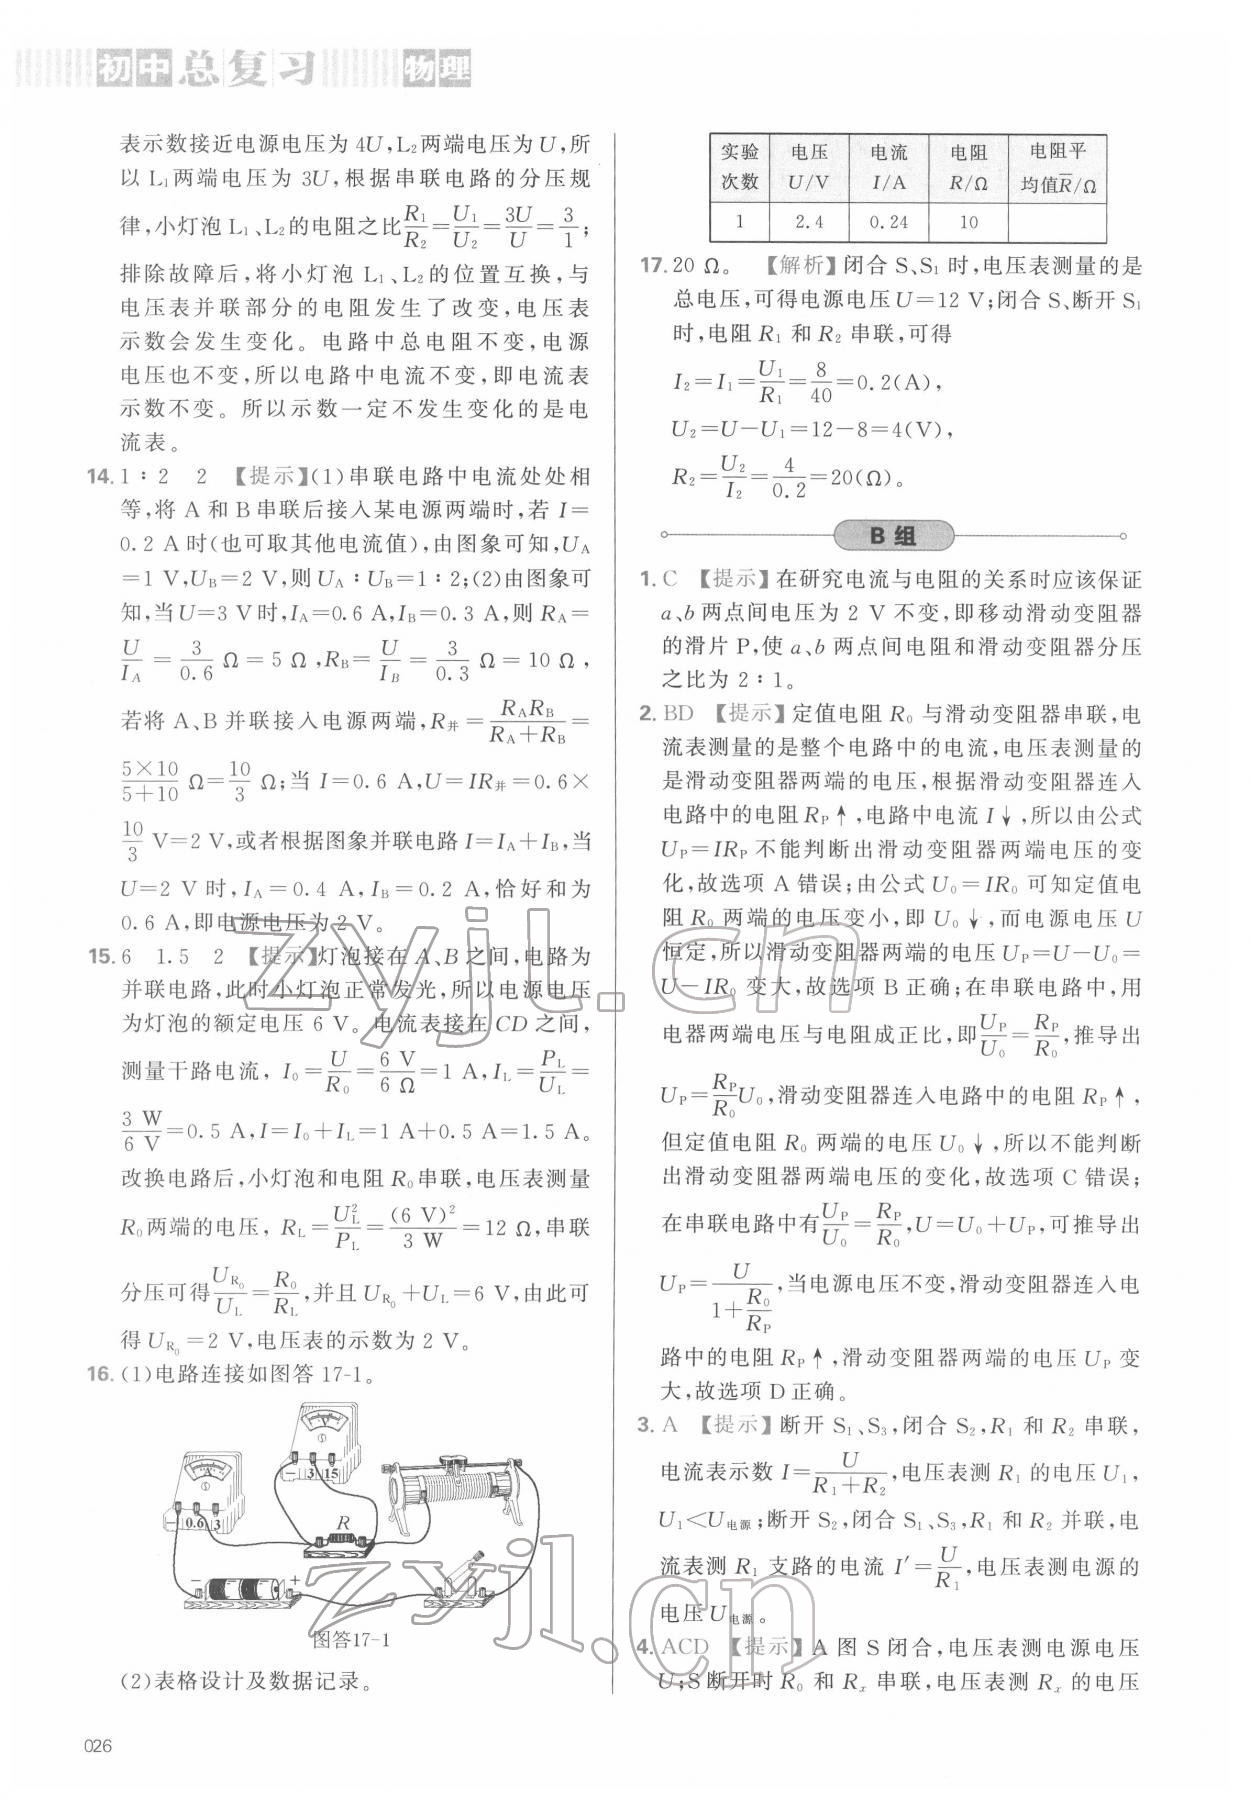 初中总复习 物理
表示数接近电源电压为 4U,L₂两端电压为 U,所
以 L₁两端电压为 3U,根据串联电路的分压规
律,小灯泡 L₁、L₂的电阻之比R₁/R₂=U₁/U₂=3U/U=3/1;
排除故障后,将小灯泡 L₁、L₂的位置互换,与
电压表并联部分的电阻发生了改变,电压表
示数会发生变化。电路中总电阻不变,电源
电压也不变,所以电路中电流不变,即电流表
示数不变。所以示数一定不发生变化的是电
流表。
14. 1∶2 2 【提示】(1)串联电路中电流处处相
等,将 A 和 B 串联后接入某电源两端时,若 I=
0.2 A 时(也可取其他电流值),由图象可知,U_A
=1 V,U_B=2 V,则 U_A∶U_B=1∶2;(2)由图象可
知,当 U=3 V 时,I_A=0.6 A,I_B=0.3 A,则 R_A=
U/I_A=3/0.6 Ω=5 Ω,R_B=U/I_B=3/0.3 Ω=10 Ω,
若将 A、B 并联接入电源两端,R并=R_A R_B/(R_A+R_B)=
(5×10)/(5+10) Ω=10/3 Ω;当 I=0.6 A,U=IR并=0.6×
10/3 V=2 V,或者根据图象并联电路 I=I_A+I_B,当
U=2 V 时,I_A=0.4 A,I_B=0.2 A,恰好和为
0.6 A,即电源电压为 2 V。
15. 6 1.5 2 【提示】灯泡接在 A、B 之间,电路为
并联电路,此时小灯泡正常发光,所以电源电压
为灯泡的额定电压 6 V。电流表接在 CD 之间,
测量干路电流, I₀=U/R₀=6 V/6 Ω=1 A,I_L=P_L/U_L=
3 W/6 V=0.5 A,I=I₀+I_L=1 A+0.5 A=1.5 A。
改换电路后,小灯泡和电阻 R₀串联,电压表测量
R₀两端的电压, R_L=U_L²/P_L=(6 V)²/3 W=12 Ω,串联
分压可得U_R₀/U_L=R₀/R_L,并且 U_R₀+U_L=6 V,由此可
得 U_R₀=2 V,电压表的示数为 2 V。
16. (1)电路连接如图答 17-1。
V
− 3 15
A
− 0.6 3
R
− +
图答17-1
(2)表格设计及数据记录。
026
实验次数 电压U/V 电流I/A 电阻R/Ω 电阻平均值R̅/Ω
1 2.4 0.24 10
17. 20 Ω。 【解析】闭合 S、S₁ 时,电压表测量的是
总电压,可得电源电压 U=12 V;闭合 S、断开 S₁
时,电阻 R₁ 和 R₂ 串联,可得
I₂=I₁=U₁/R₁=8/40=0.2(A),
U₂=U−U₁=12−8=4(V),
R₂=U₂/I₂=4/0.2=20(Ω)。
B 组
1. C 【提示】在研究电流与电阻的关系时应该保证
a、b 两点间电压为 2 V 不变,即移动滑动变阻器
的滑片 P,使 a、b 两点间电阻和滑动变阻器分压
之比为 2∶1。
2. BD 【提示】定值电阻 R₀ 与滑动变阻器串联,电
流表测量的是整个电路中的电流,电压表测量的
是滑动变阻器两端的电压,根据滑动变阻器连入
电路中的电阻 R_P↑,电路中电流 I↓,所以由公式
U_P=IR_P 不能判断出滑动变阻器两端电压的变
化,故选项 A 错误;由公式 U₀=IR₀ 可知定值电
阻 R₀ 两端的电压变小,即 U₀↓,而电源电压 U
恒定,所以滑动变阻器两端的电压 U_P=U−U₀=
U−IR₀ 变大,故选项 B 正确;在串联电路中,用
电器两端电压与电阻成正比,即U_P/U₀=R_P/R₀,推导出
U_P=R_P/R₀U₀,滑动变阻器连入电路中的电阻 R_P↑,
但定值电阻 R₀ 两端的电压 U₀↓,所以不能判断
出滑动变阻器两端电压的变化,故选项 C 错误;
在串联电路中有U_P/U₀=R_P/R₀,U=U₀+U_P,可推导出
U_P=U/(1+R₀/R_P),当电源电压不变,滑动变阻器连入电
路中的电阻 R_P↑,滑动变阻器两端的电压 U_P 变
大,故选项 D 正确。
3. A 【提示】断开 S₁、S₃,闭合 S₂,R₁ 和 R₂ 串联,
电流表示数 I=U/(R₁+R₂),电压表测 R₁ 的电压 U₁,
U₁<U电源;断开 S₂,闭合 S₁、S₃,R₁ 和 R₂ 并联,电
流表测 R₁ 支路的电流 I′=U/R₁,电压表测电源的
电压 U电源。
4. ACD 【提示】A 图 S 闭合,电压表测电源电压
U;S 断开时 R₀ 和 Rₓ 串联,电压表测 Rₓ 的电压
zyjl.cn
zyjl.cn